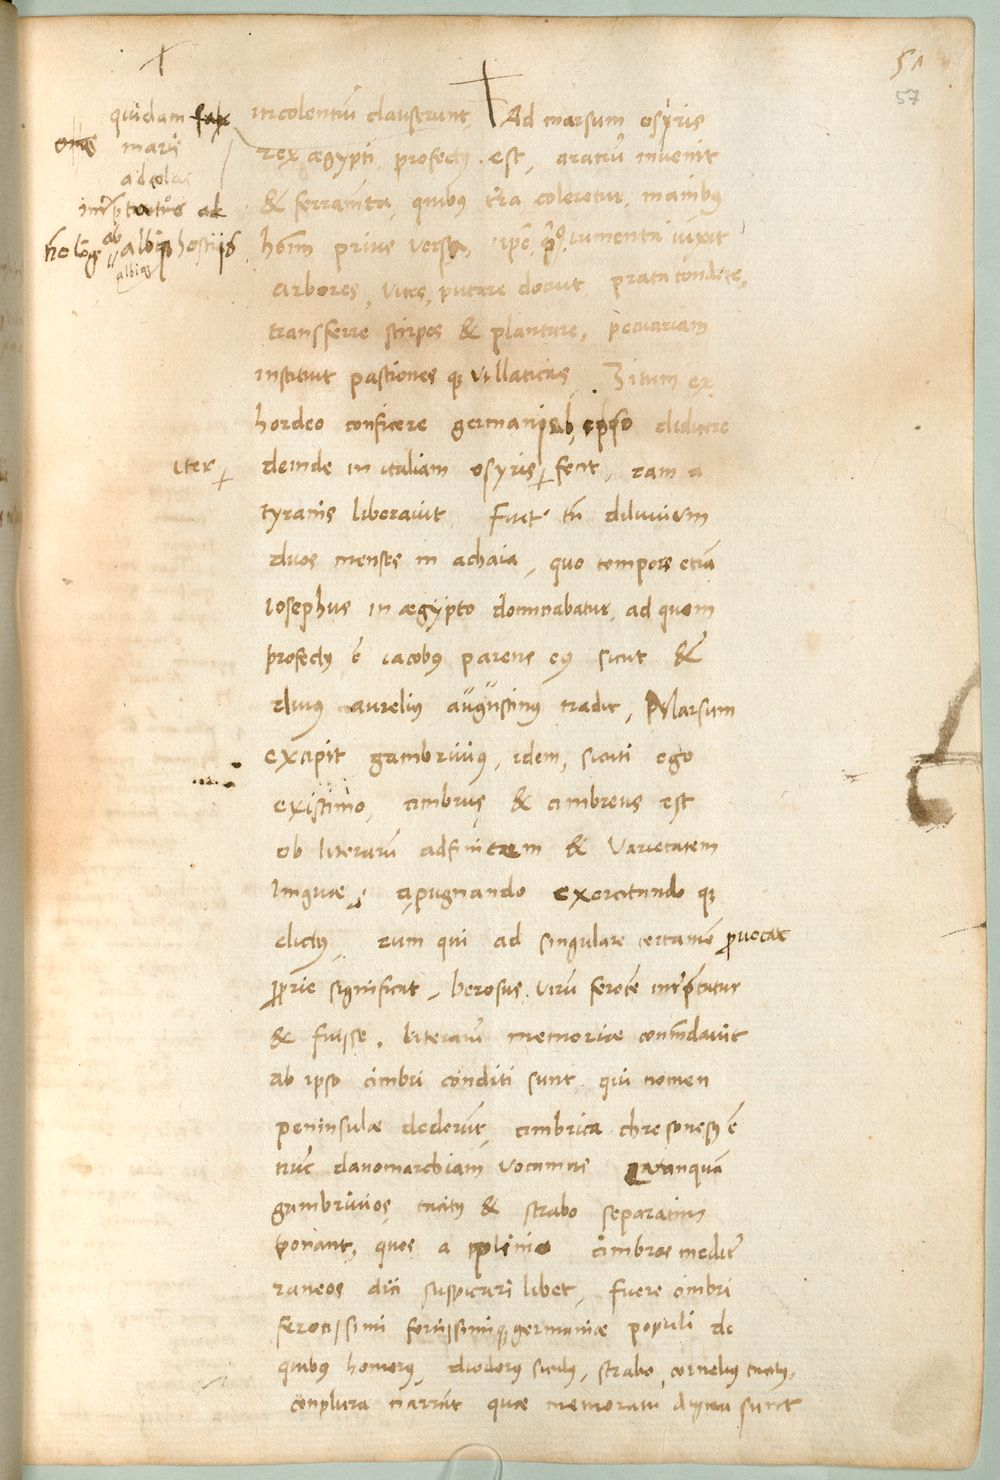 51
57
quidam
maris
adcolas
incolentiũ clauserunt, Ad marsum osyris
rex ægypti profectus est, aratrũ invenit
& ferramẽta, quibus tr̃a coleretur, manibus
hom̃ prius versa, ipẽ iumenta iuxit
arbores, vites, putare docuit, prata tondere,
transferre stirpes & plantare, pecuariam
instituit pastiones qꝫ villaticas Zitum ex
hordeo conficere germani ab didicere
iter
deinde in italiam osyris fecit, eam a
tyranis liberavit Fuit tñ diluvium
duos menses in achaia, quo tempore etiã
Iosephus in ægypto dominabatur, ad quem
profectus ẽ iacobus parens eius sicut &
divus aurelius augustinus tradit, Marsum
excipit gambrivius, idem, sicuti ego
existimo, cimbrus & cimbreus est
ob literarũ adfinitatem & varietatem
linguæ, a pugnando exercitando qꝫ
dictus, eum qui ad singulare certamẽ provocat
proprie significat, berosus virũ ferocẽ interpretatur
& fuisse, literarũ memoriæ commẽdavit
ab ipso cimbri conditi sunt qui nomen
peninsulæ dederũt, cimbrica chresonesus ẽ
nũc danomarchiam vocamus tanquã
gambrivios tacitus & strabo separatim
ponant, quos a plinio cimbros mediter
raneos dici suspicari libet, fuere cimbri
ferocissimi fortissimiqꝫ germaniæ populi de
quibus homerus, diodorus siculus, strabo, cornelius tacitus,
conplura narrãt quæ memoratu digna sunt